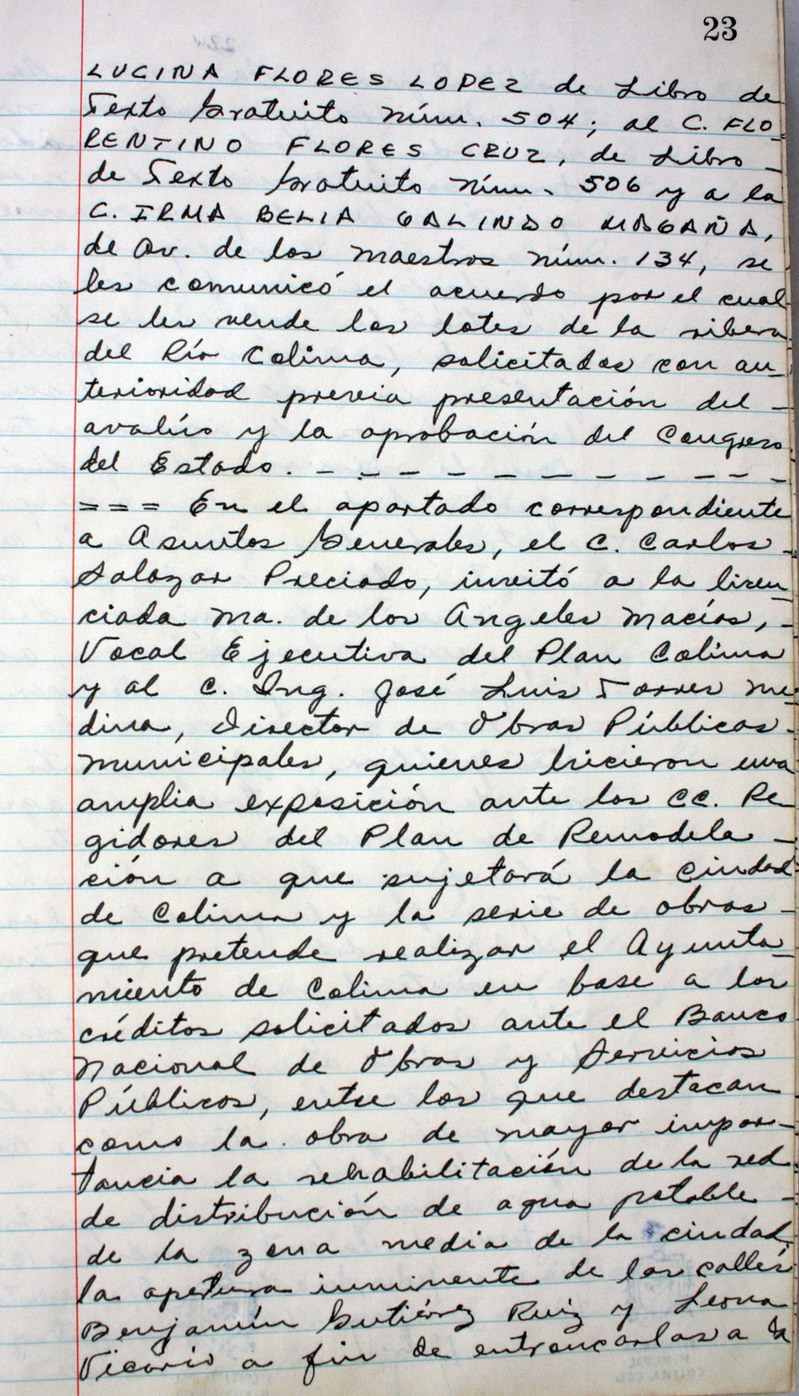 23
LUCINA FLORES LOPEZ de Libro de
Texto Gratuito núm. 504; al C. FLO-
RENTINO FLORES CRUZ, de Libro -
de Texto Gratuito núm. 506 y a la
C. IRMA BELIA GALINDO MAGAÑA,
de Av. de los maestros núm. 134, se
les comunicó el acuerdo por el cual
se les vende los lotes de la ribera
del Río Colima, solicitados con an-
terioridad previa presentación del -
avalúo y la aprobación del Congreso
del Estado. - - - - - - - - - - -
=== En el apartado correspondiente
a Asuntos Generales, el C. Carlos -
Salazar Preciado, invitó a la licen-
ciada Ma. de los Angeles Macías, -
Vocal Ejecutiva del Plan Colima
y al C. Ing. José Luis Torres Me-
dina, Director de Obras Públicas -
municipales, quienes hicieron una
amplia exposición ante los CC. Re-
gidores del Plan de Remodela -
ción a que sujetará la ciudad
de Colima y la serie de obras -
que pretende realizar el Ayunta-
miento de Colima en base a los
créditos solicitados ante el Banco
Nacional de Obras y Servicios
Públicos, entre los que destacan
como la obra de mayor impor-
tancia la rehabilitación de la red
de distribución de agua potable -
de la zona media de la ciudad,
la apetura inminente de las calles
Benjamín Gutiérrez Ruiz y Leona
Vicario a fin de entroncarlas a la